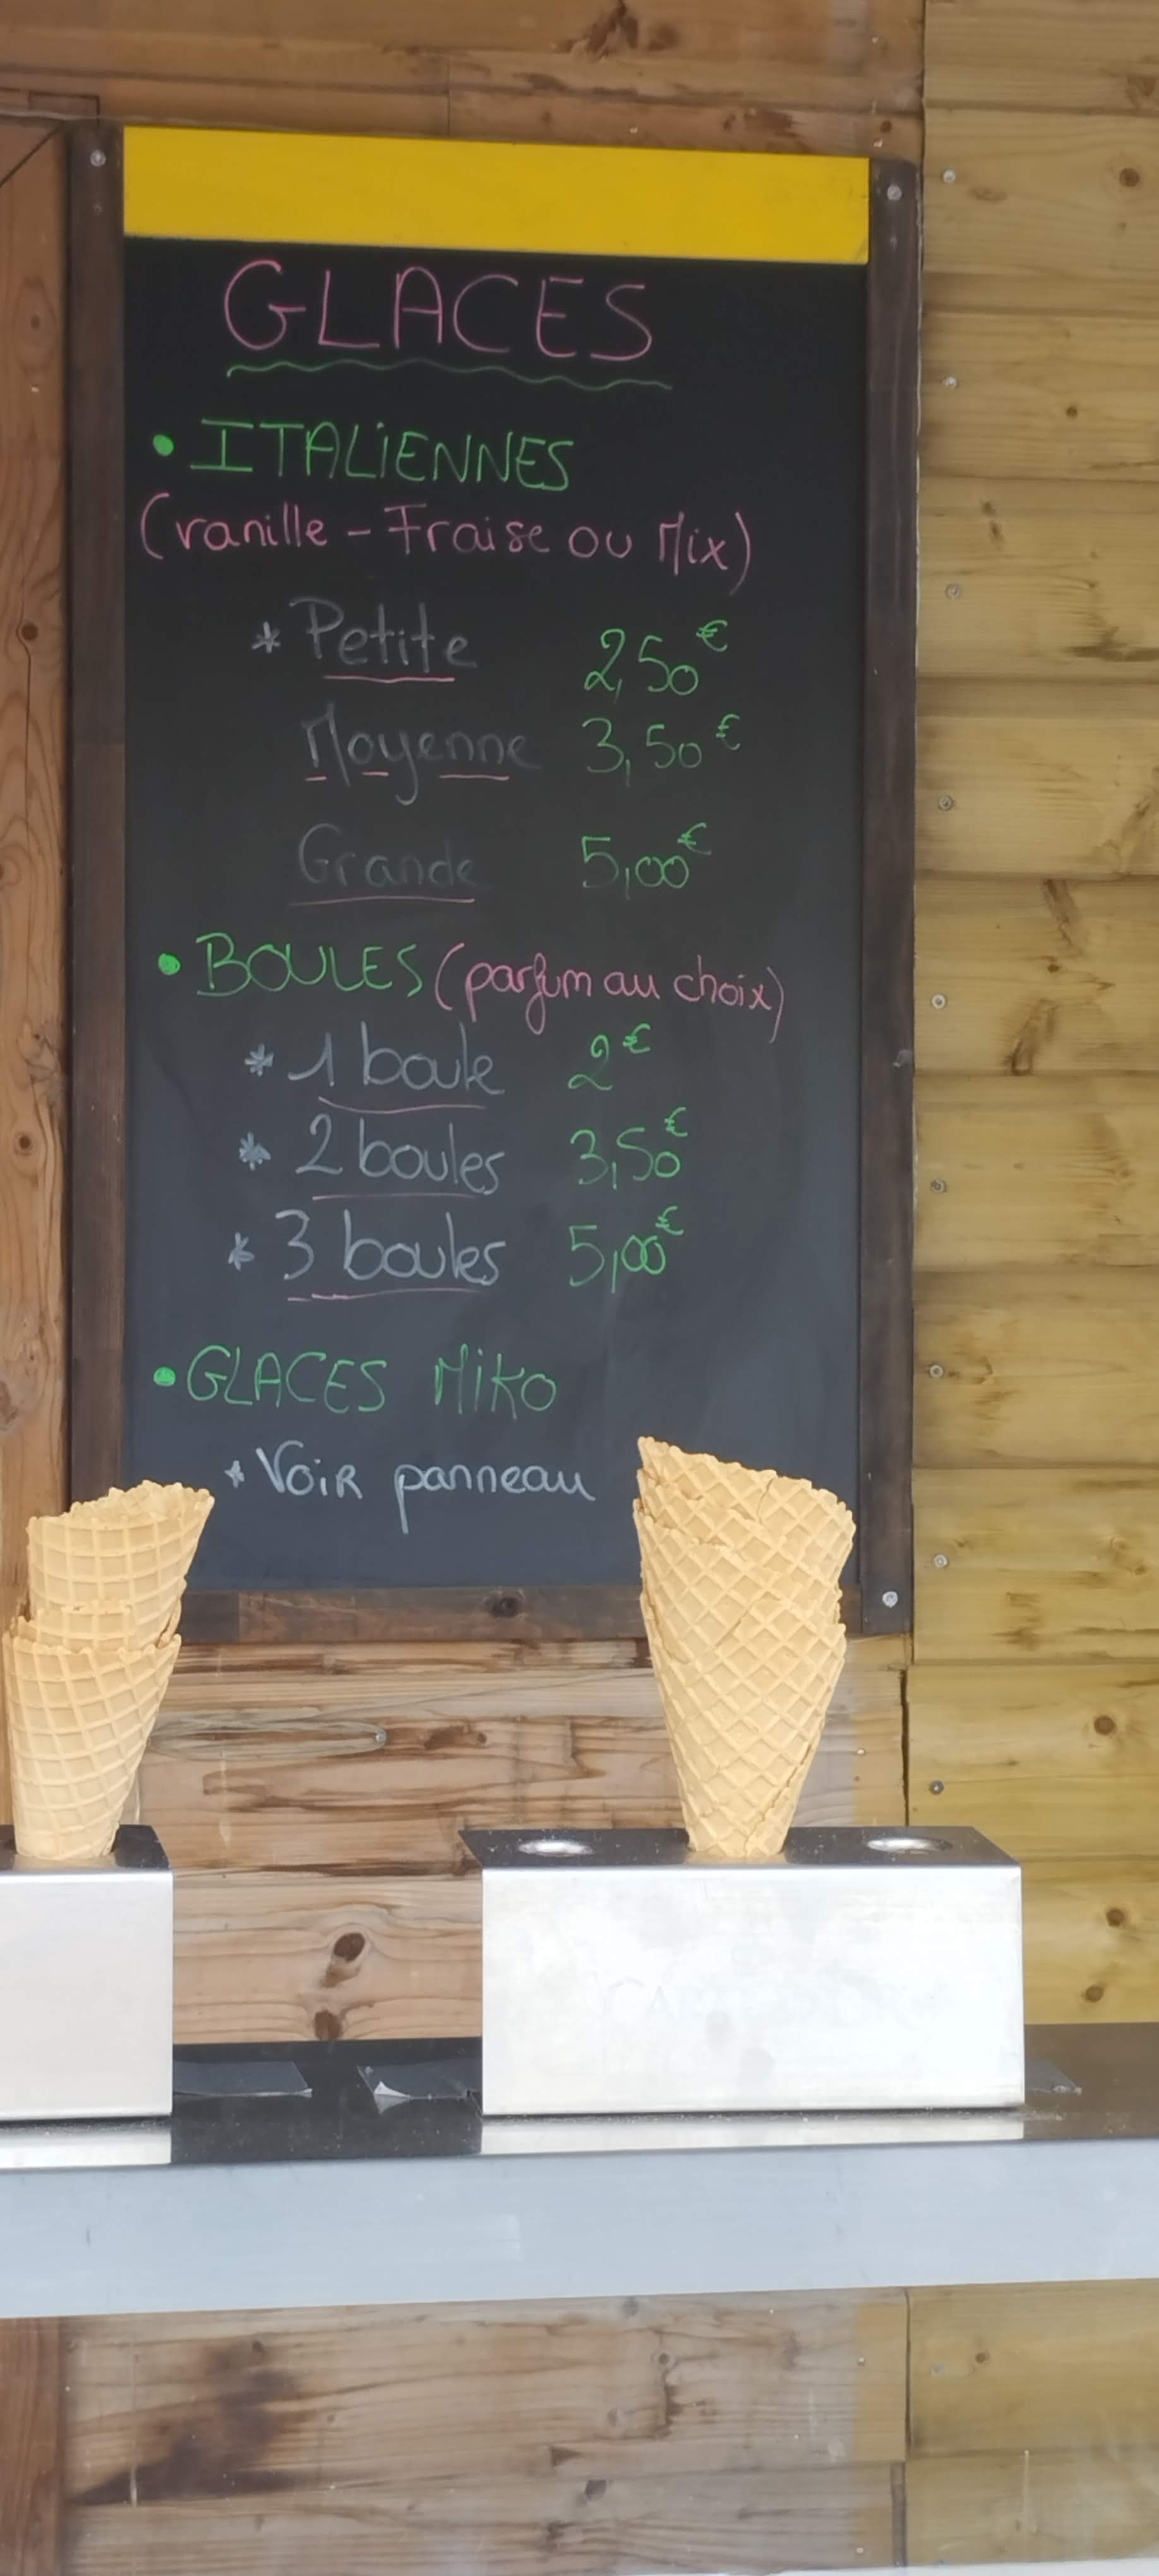 GLACES
• ITALiENNES
(vanille - Fraise ou Mix)
* Petite 2,50€
Moyenne 3,50€
Grande 5,00€
• BOULES (parfum au choix)
* 1 boule 2€
* 2 boules 3,50€
* 3 boules 5,00€
• GLACES MiKO
* VOiR panneau